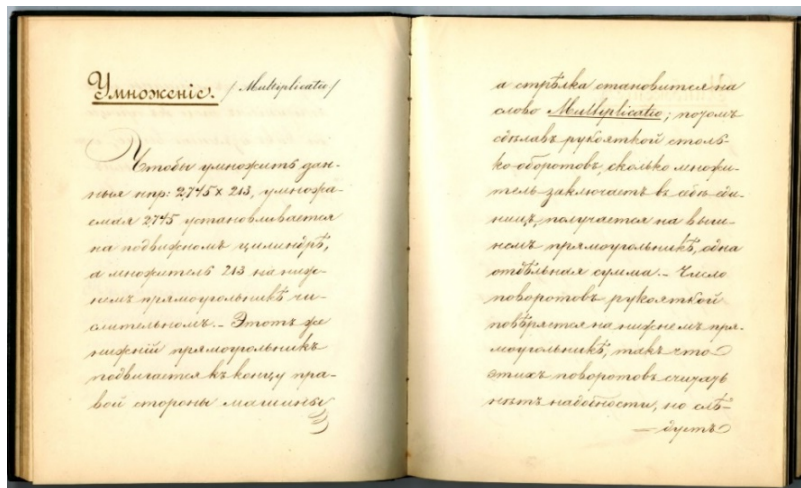 Умноженіе. /Multiplicatio/
Чтобы умножить дан-
ныя нпр: 2,745 x 213, умножа-
емая 2,745 установливается
на подвижномъ цилиндрѣ,
а множитель 213 на ниж-
немъ прямоугольникѣ чи-
слительномъ. - Этотъ же
нижній прямоугольникъ
подвигается къ концу пра-
вой стороны машины
а стрѣлка становится на
слово Multiplicatio; потомъ
сдѣлавъ рукояткой столь-
ко оборотовъ, сколько множи-
тель заключаетъ въ себѣ еди-
ницъ, получается на
прямоугольникѣ, одна
отдѣльная сумма. - Число
поворотовъ рукояткой
повѣряется на нижнемъ пря-
моугольникѣ, такъ что
этихъ поворотовъ считать
нѣтъ надобности, но слѣ-
— дуетъ